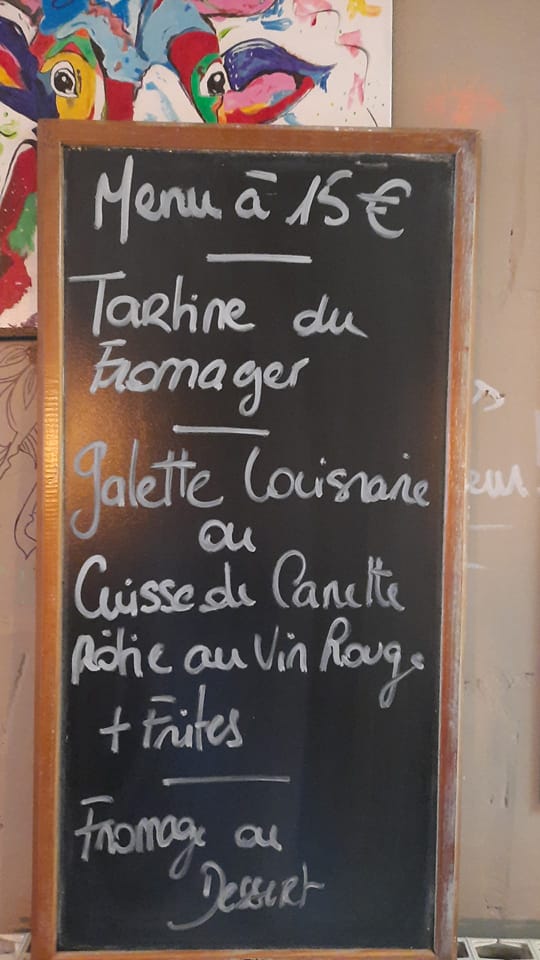 Menu à 15€
Tartine du
Fromager
galette Louisiane
ou
Cuisse de Canette
Rôtie au Vin Rouge
+ Frites
Fromage ou
Dessert